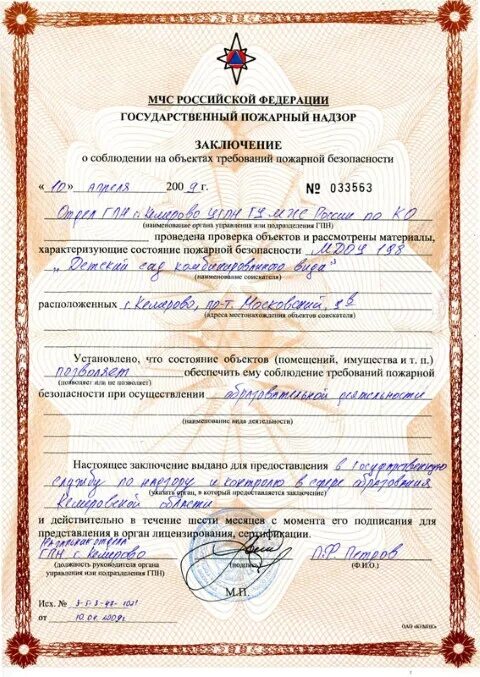 МЧС РОССИЙСКОЙ ФЕДЕРАЦИИ
ГОСУДАРСТВЕННЫЙ ПОЖАРНЫЙ НАДЗОР
ЗАКЛЮЧЕНИЕ
о соблюдении на объектах требований пожарной безопасности
«10» апреля 2009 г. № 033563
Отдел ГПН г. Кемерово УГПН ГУ МЧС России по КО
(наименование органа управления или подразделения ГПН)
проведена проверка объектов и рассмотрены материалы,
характеризующие состояние пожарной безопасности МДОУ 198
„Детский сад комбинированного вида"
(наименование соискателя)
расположенных г. Кемерово, пр-т. Московский, 8В
(адреса местонахождения объектов соискателя)
Установлено, что состояние объектов (помещений, имущества и т. п.)
позволяет обеспечить ему соблюдение требований пожарной
(позволяет или не позволяет)
безопасности при осуществлении образовательной деятельности
(наименование вида деятельности)
Настоящее заключение выдано для предоставления в Государственную
службу по надзору и контролю в сфере образования
(указать орган, в который предоставляется заключение)
Кемеровской области
и действительно в течение шести месяцев с момента его подписания для
представления в орган лицензирования, сертификации.
Начальник отдела
ГПН г. Кемерово П.Ф Петров
(должность руководителя органа (подпись) (Ф.И.О.)
управления или подразделения ГПН)
М.П.
Исх. №
от 10.04.2009г.
ОАО «КЕМПК»